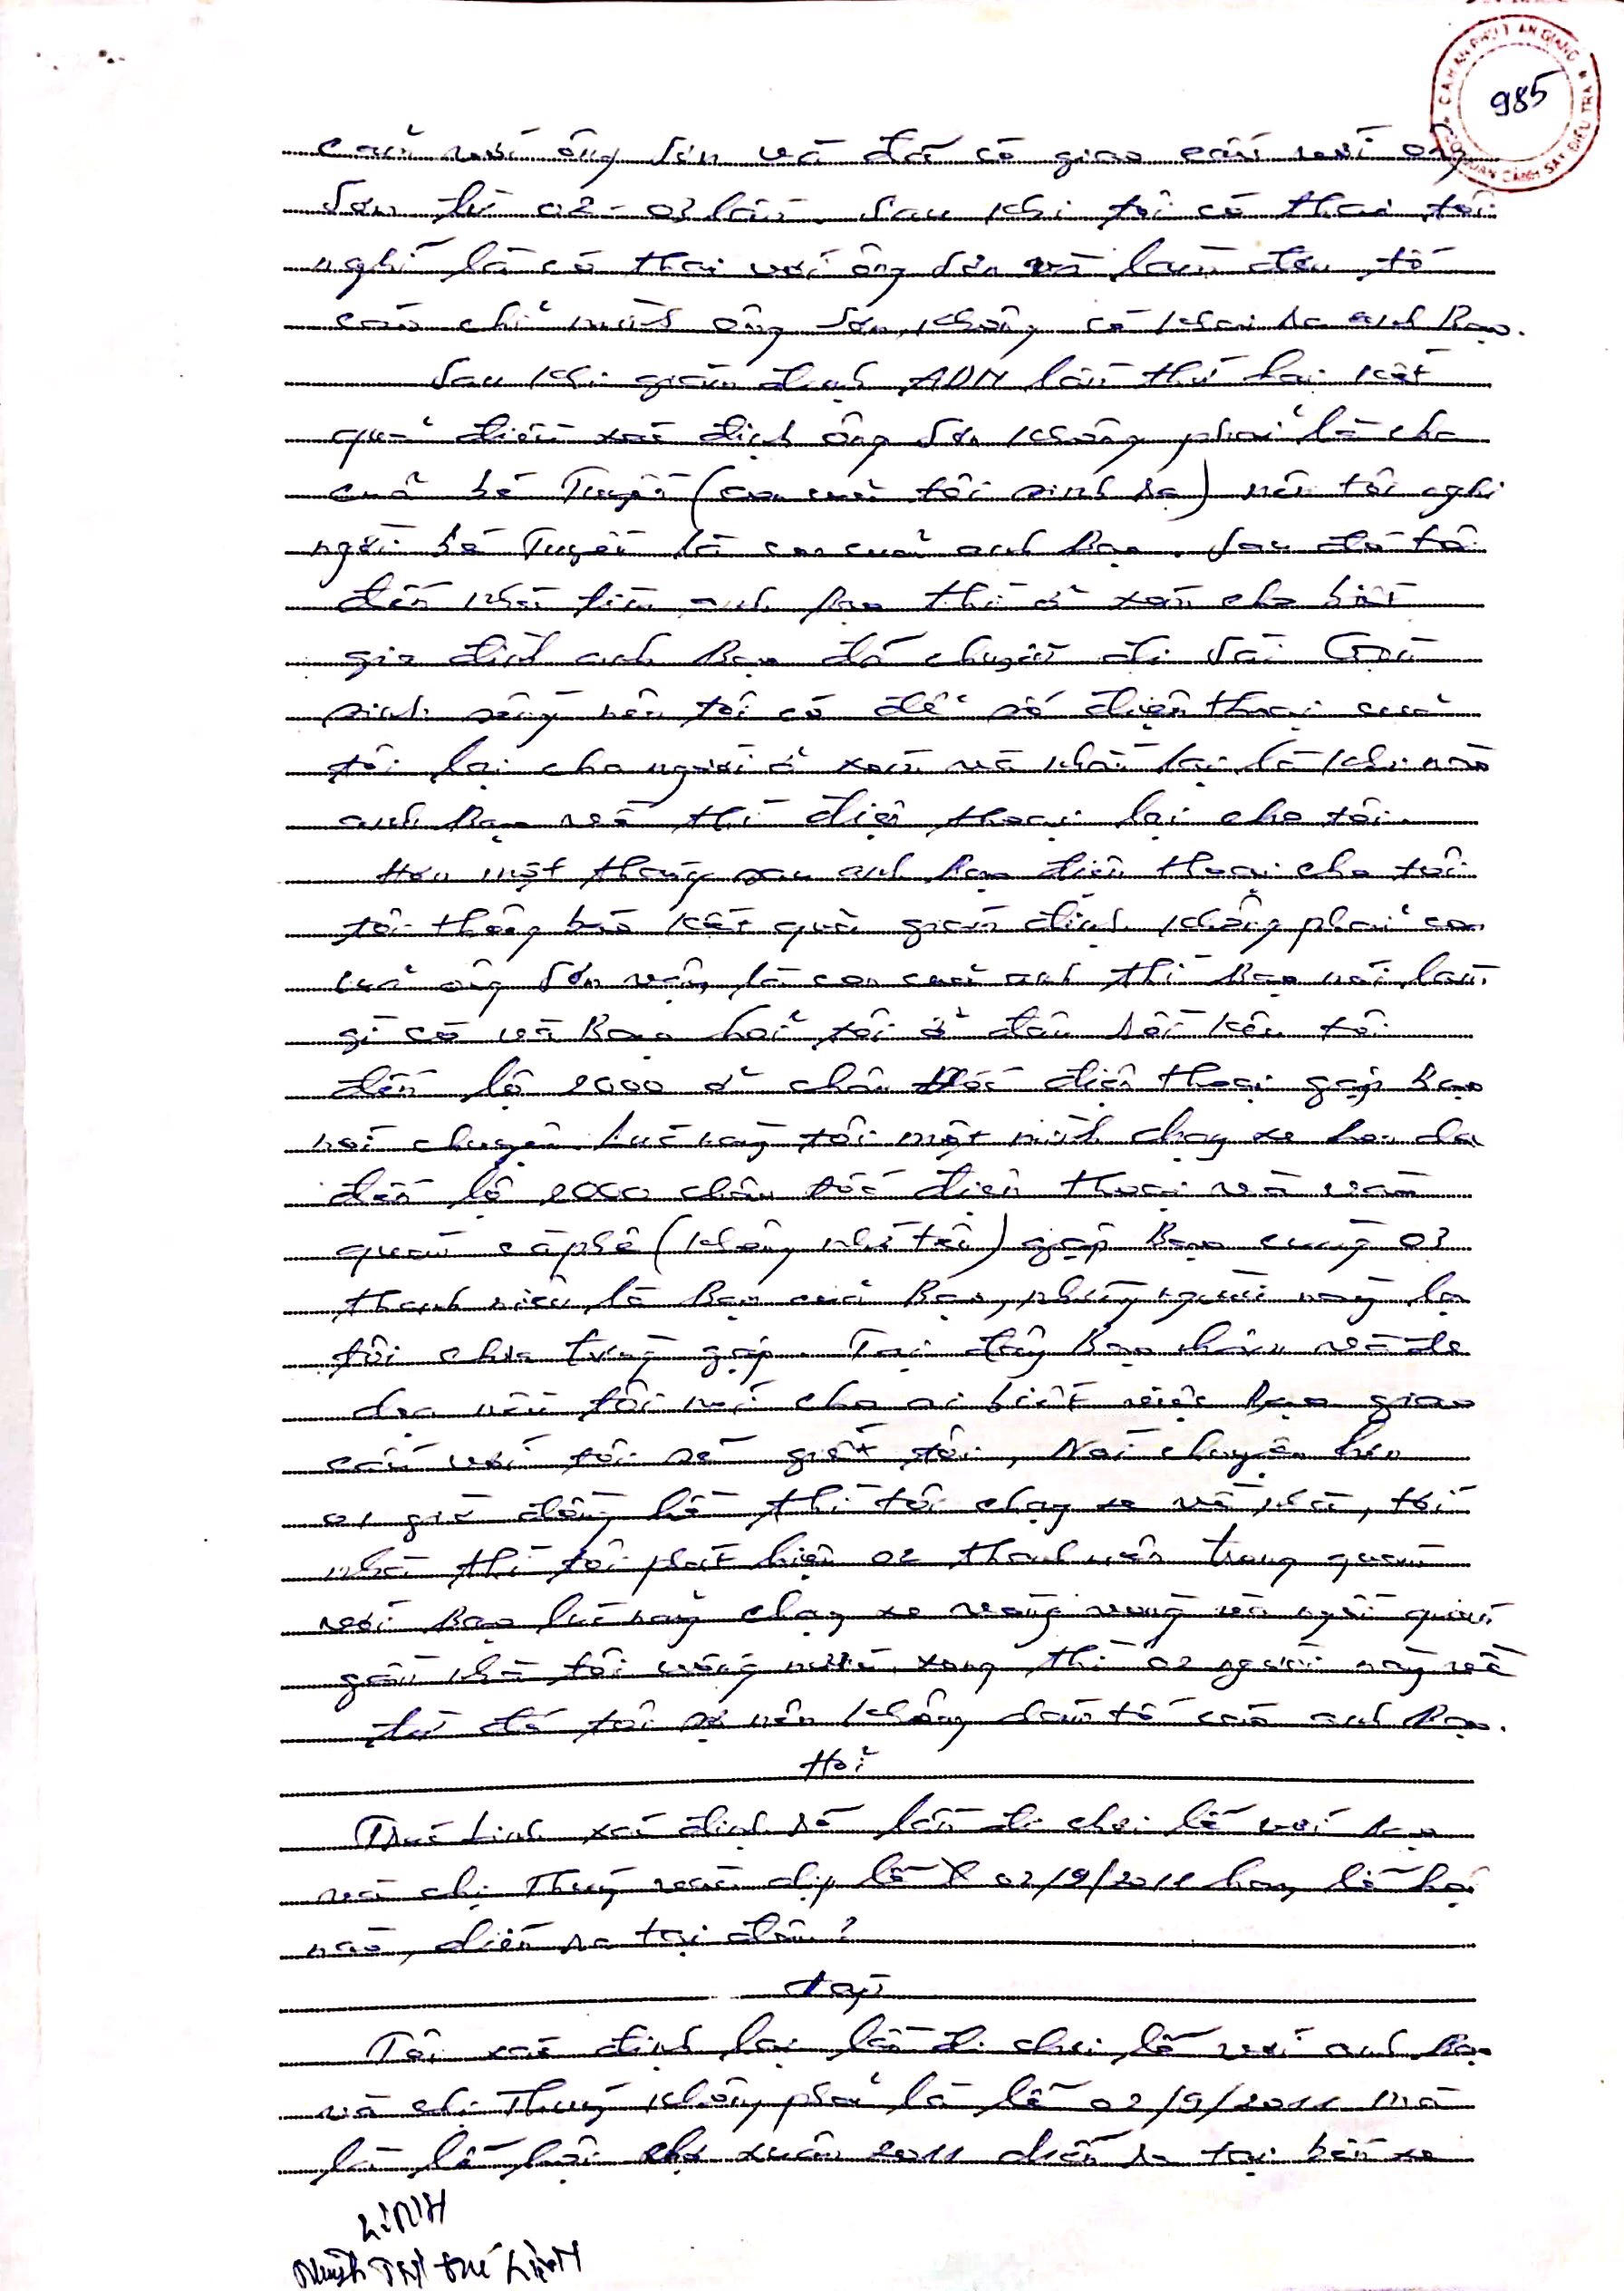 985
cấu với ông Sơn và đã có giao cấu với ông
Sơn từ 02 - 03 lần. Sau khi tôi có thai tôi
nghĩ là có thai với ông Sơn và làm đơn tố
cáo chỉ mình ông Sơn, không có khai ra anh Bạo.
Sau khi giám định ADN lần thứ hai kết
quả điều xác định ông Sơn không phải là cha
của bé Tuyền (con của tôi sinh ra) nên tôi nghi
ngờ bé Tuyền là con của anh Bạo. Sau đó tôi
đến nhà tìm anh Bạo thì ở xóm cho biết
gia đình anh Bạo đã chuyển đi Sài Gòn
sinh sống nên tôi có để số điện thoại của
tôi lại cho người ở xóm và nhắn lại là khi nào
anh Bạo về thì điện thoại lại cho tôi.
Hơn một tháng sau anh Bạo điện thoại cho tôi
tôi thông báo kết quả giám định không phải con
của ông Sơn vậy là con của anh thì Bạo nói làm
gì có và Bạo hỏi tôi ở đâu rồi kêu tôi
đến lộ 2000 ở chân điện thoại gặp Bạo
nói chuyện. Lúc này tôi một mình chạy xe hon da
đến lộ 2000 chân điện thoại và vào
quán cà phê (không nhớ tên) gặp Bạo cùng 03
thanh niên là Bạn của Bạo, những người này lạ
tôi chưa từng gặp. Tại đây Bạo nhắn và đe
dọa nếu tôi nói cho ai biết việc Bạo giao
cấu với tôi sẽ giết tôi, Nói chuyện hơn
01 giờ đồng hồ thì tôi chạy xe về nhà, tới
nhà thì tôi phát hiện 02 thanh niên trong quán
với Bạo lúc nảy chạy xe vòng vòng và ngồi quán
gần nhà tôi uống nước xong thì 02 người này về
từ đó tôi sợ nên không dám tố cáo anh Bạo.
Hỏi
Trúc Linh xác định rõ lần đi chơi lễ với Bạo
và chị Thúy vào dịp lễ 02/9/2011 hay lễ hội
nào, diễn ra tại đâu?
Đáp
Tôi xác định lại lần đi chơi lễ với anh Bạo
và chị Thúy không phải là lễ 02/9/2011 mà
là lễ hội chợ xuân 2011 diễn ra tại bến xe
LiNH